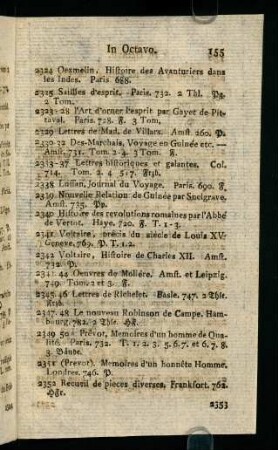 In Octavo. 155
2324 Oesmelin, Histoire des Avanturiers dans
les Indes. Paris 688.
2325 Saillies d'esprit. Paris. 732. 2 Thl. Pg.
2 Tom.
2326-28 l'Art d'orner l'esprit par Gayet de Pit-
taval. Paris. 728. F. 3 Tom.
2329 Lettres de Mad. de Villars. Amst. 260. P.
2330-32 Des-Marchais, Voyage en Guinée etc. —
Amst. 731. Tom 2. 4. Tom. F.
2333-37 Lettres historiques et galantes, Col.
714. Tom. 2. 4 5. 7. Frzb.
2338 Lussan, Journal du Voyage. Paris. 690. F.
2339 Nouvelle Relation de Guinée par Snelgrave.
Amst. 735. Pp.
2340 Histoire des revolutions romaines par l'Abbé
de Vertot. Haye. 720. F. T. 1-3.
2341 Voltaire, précis du siècle de Louis XV.
Geneve. 769. P. T. 1. 2.
2342 Voltaire, Histoire de Charles XII. Amst.
732. P.
2343. 44 Oeuvres de Moliére. Amst. et Leipzig.
749. Tom. 2 et 3. F.
2345. 46 Lettres de Richelet. Basle. 747. 2 Thle.
Frzb.
2347. 48 Le nouveau Robinson de Campe. Ham-
bourg. 782. 2 Thle. HF.
2349. 50 Prévot, Memoires d'un homme de Qua-
lité. Paris. 732. T. 1. 2. 3. 5. 6. 7. et 6. 7. 8.
3 Bände.
2351 (Prevot), Memoires d'un honnête Homme.
Londres. 746. P.
2352 Recueil de pieces diverses, Frankfort. 762.
Hfr.
2353